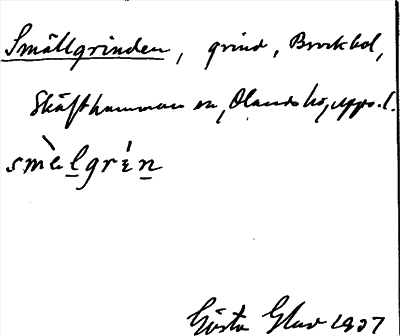 Smällgrinden, grind, Brockbol,
Skäfthammar sn, Olands hd, Upps. l.
smèlgrén
Gösta Glav 1907